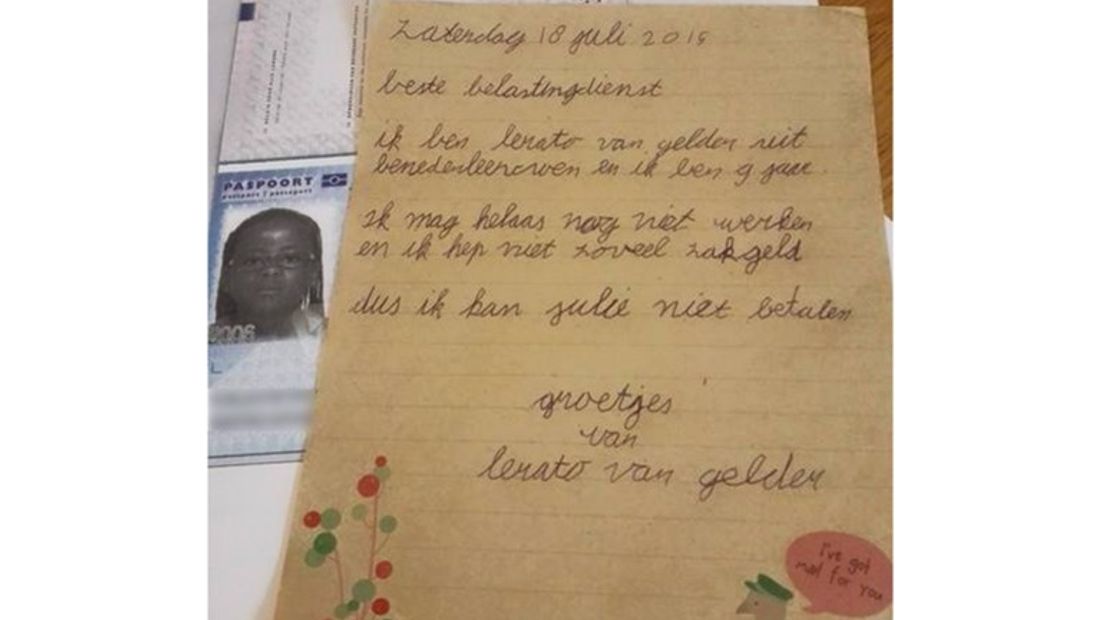 PASPOORT
zaterdag 18 juli 2015
beste belastingdienst
ik ben lerato van gelder uit
benedenleeuwen en ik ben 9 jaar.
ik mag helaas nog niet werken
en ik hep niet zoveel zakgeld
dus ik kan julie niet betalen
groetjes
van
lerato van gelder
2006
L
I've got
mail for you